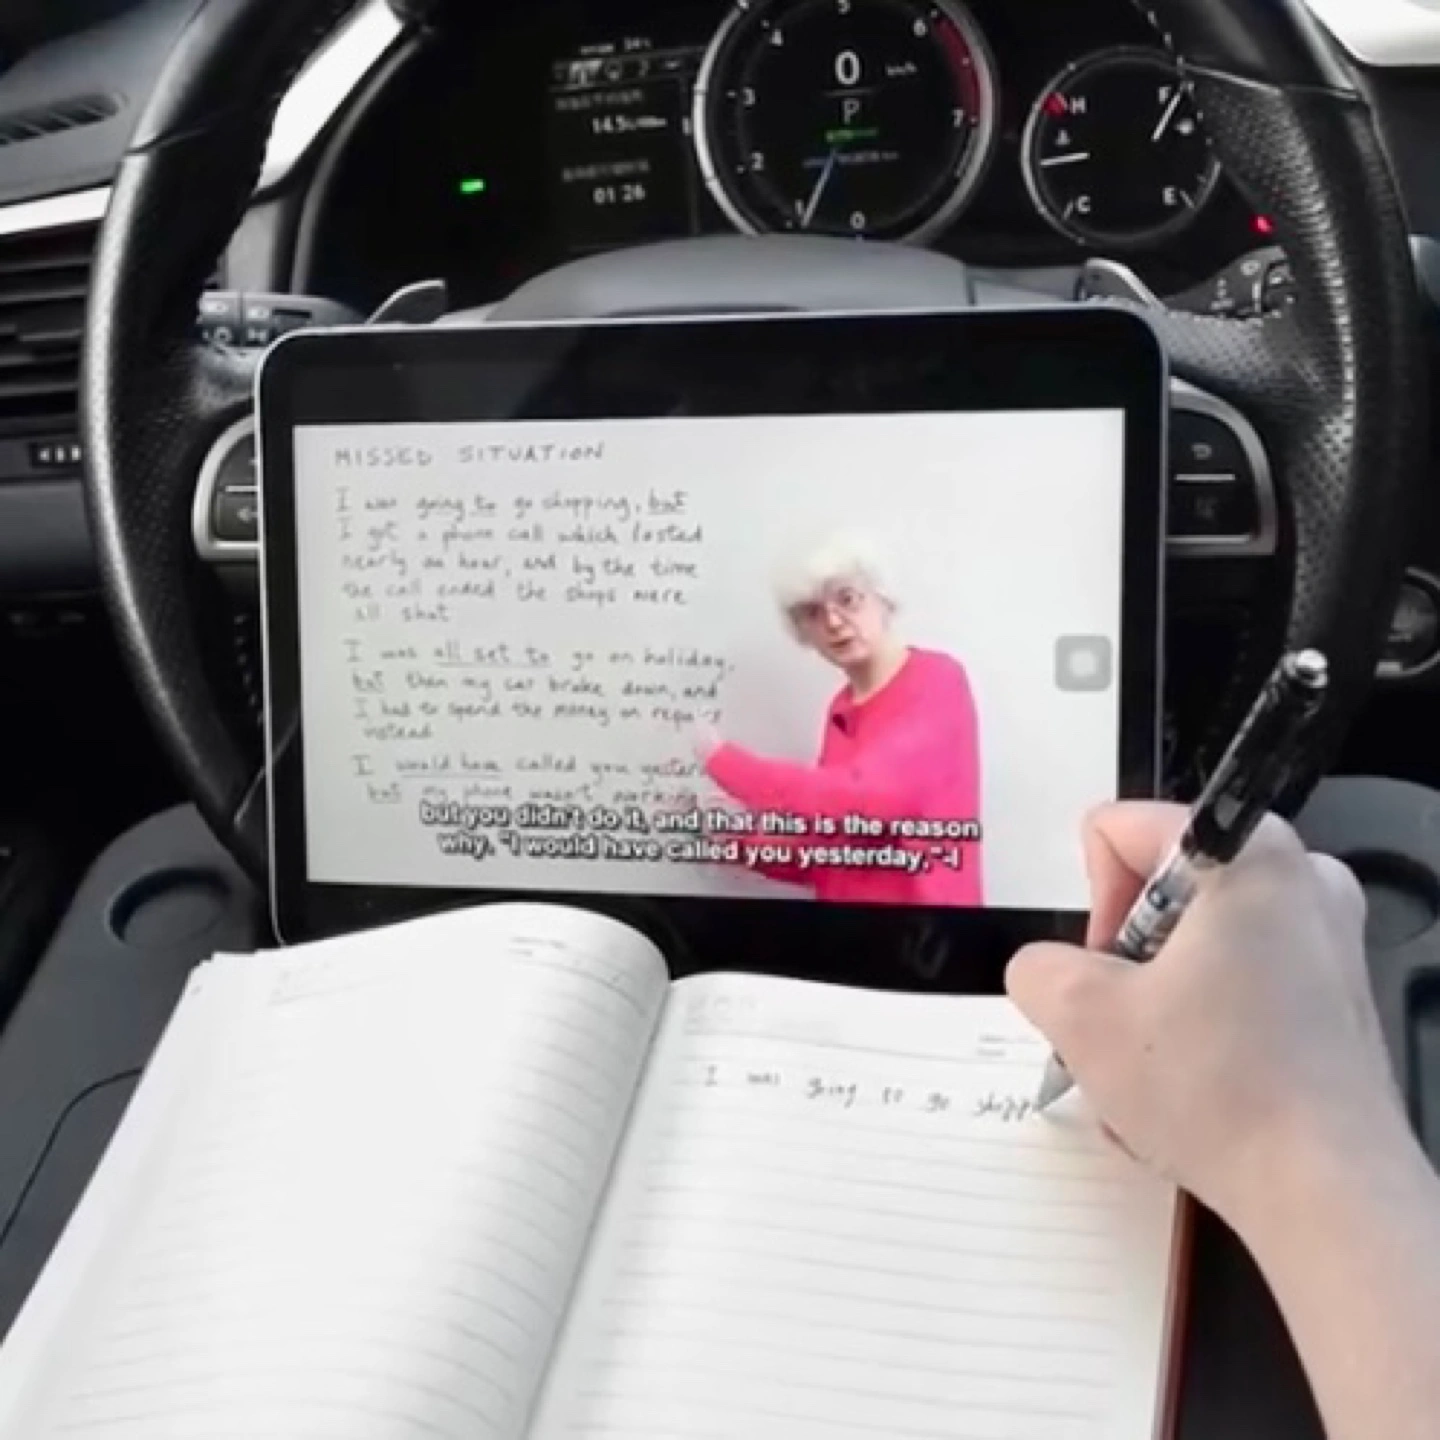 5
4
6
0
3
P
7
H
F
14.5
2
01:26
1
0
C
E
MISSED SITUATION
I was going to go shopping, but
I got a phone call which lasted
nearly an hour, and by the time
the call ended the shops were
all shut
I was all set to go on holiday,
but then my car broke down, and
I had to spend the money on repairs
instead
I would have called you
but my phone wasn't working
but you didn't do it, and that this is the reason
why. "I would have called you yesterday,"-I
I was going to go shopp